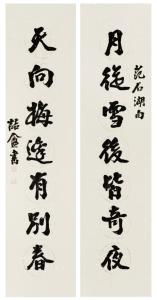 范石湖句
月從雪後皆奇夜
天向梅邊有別春